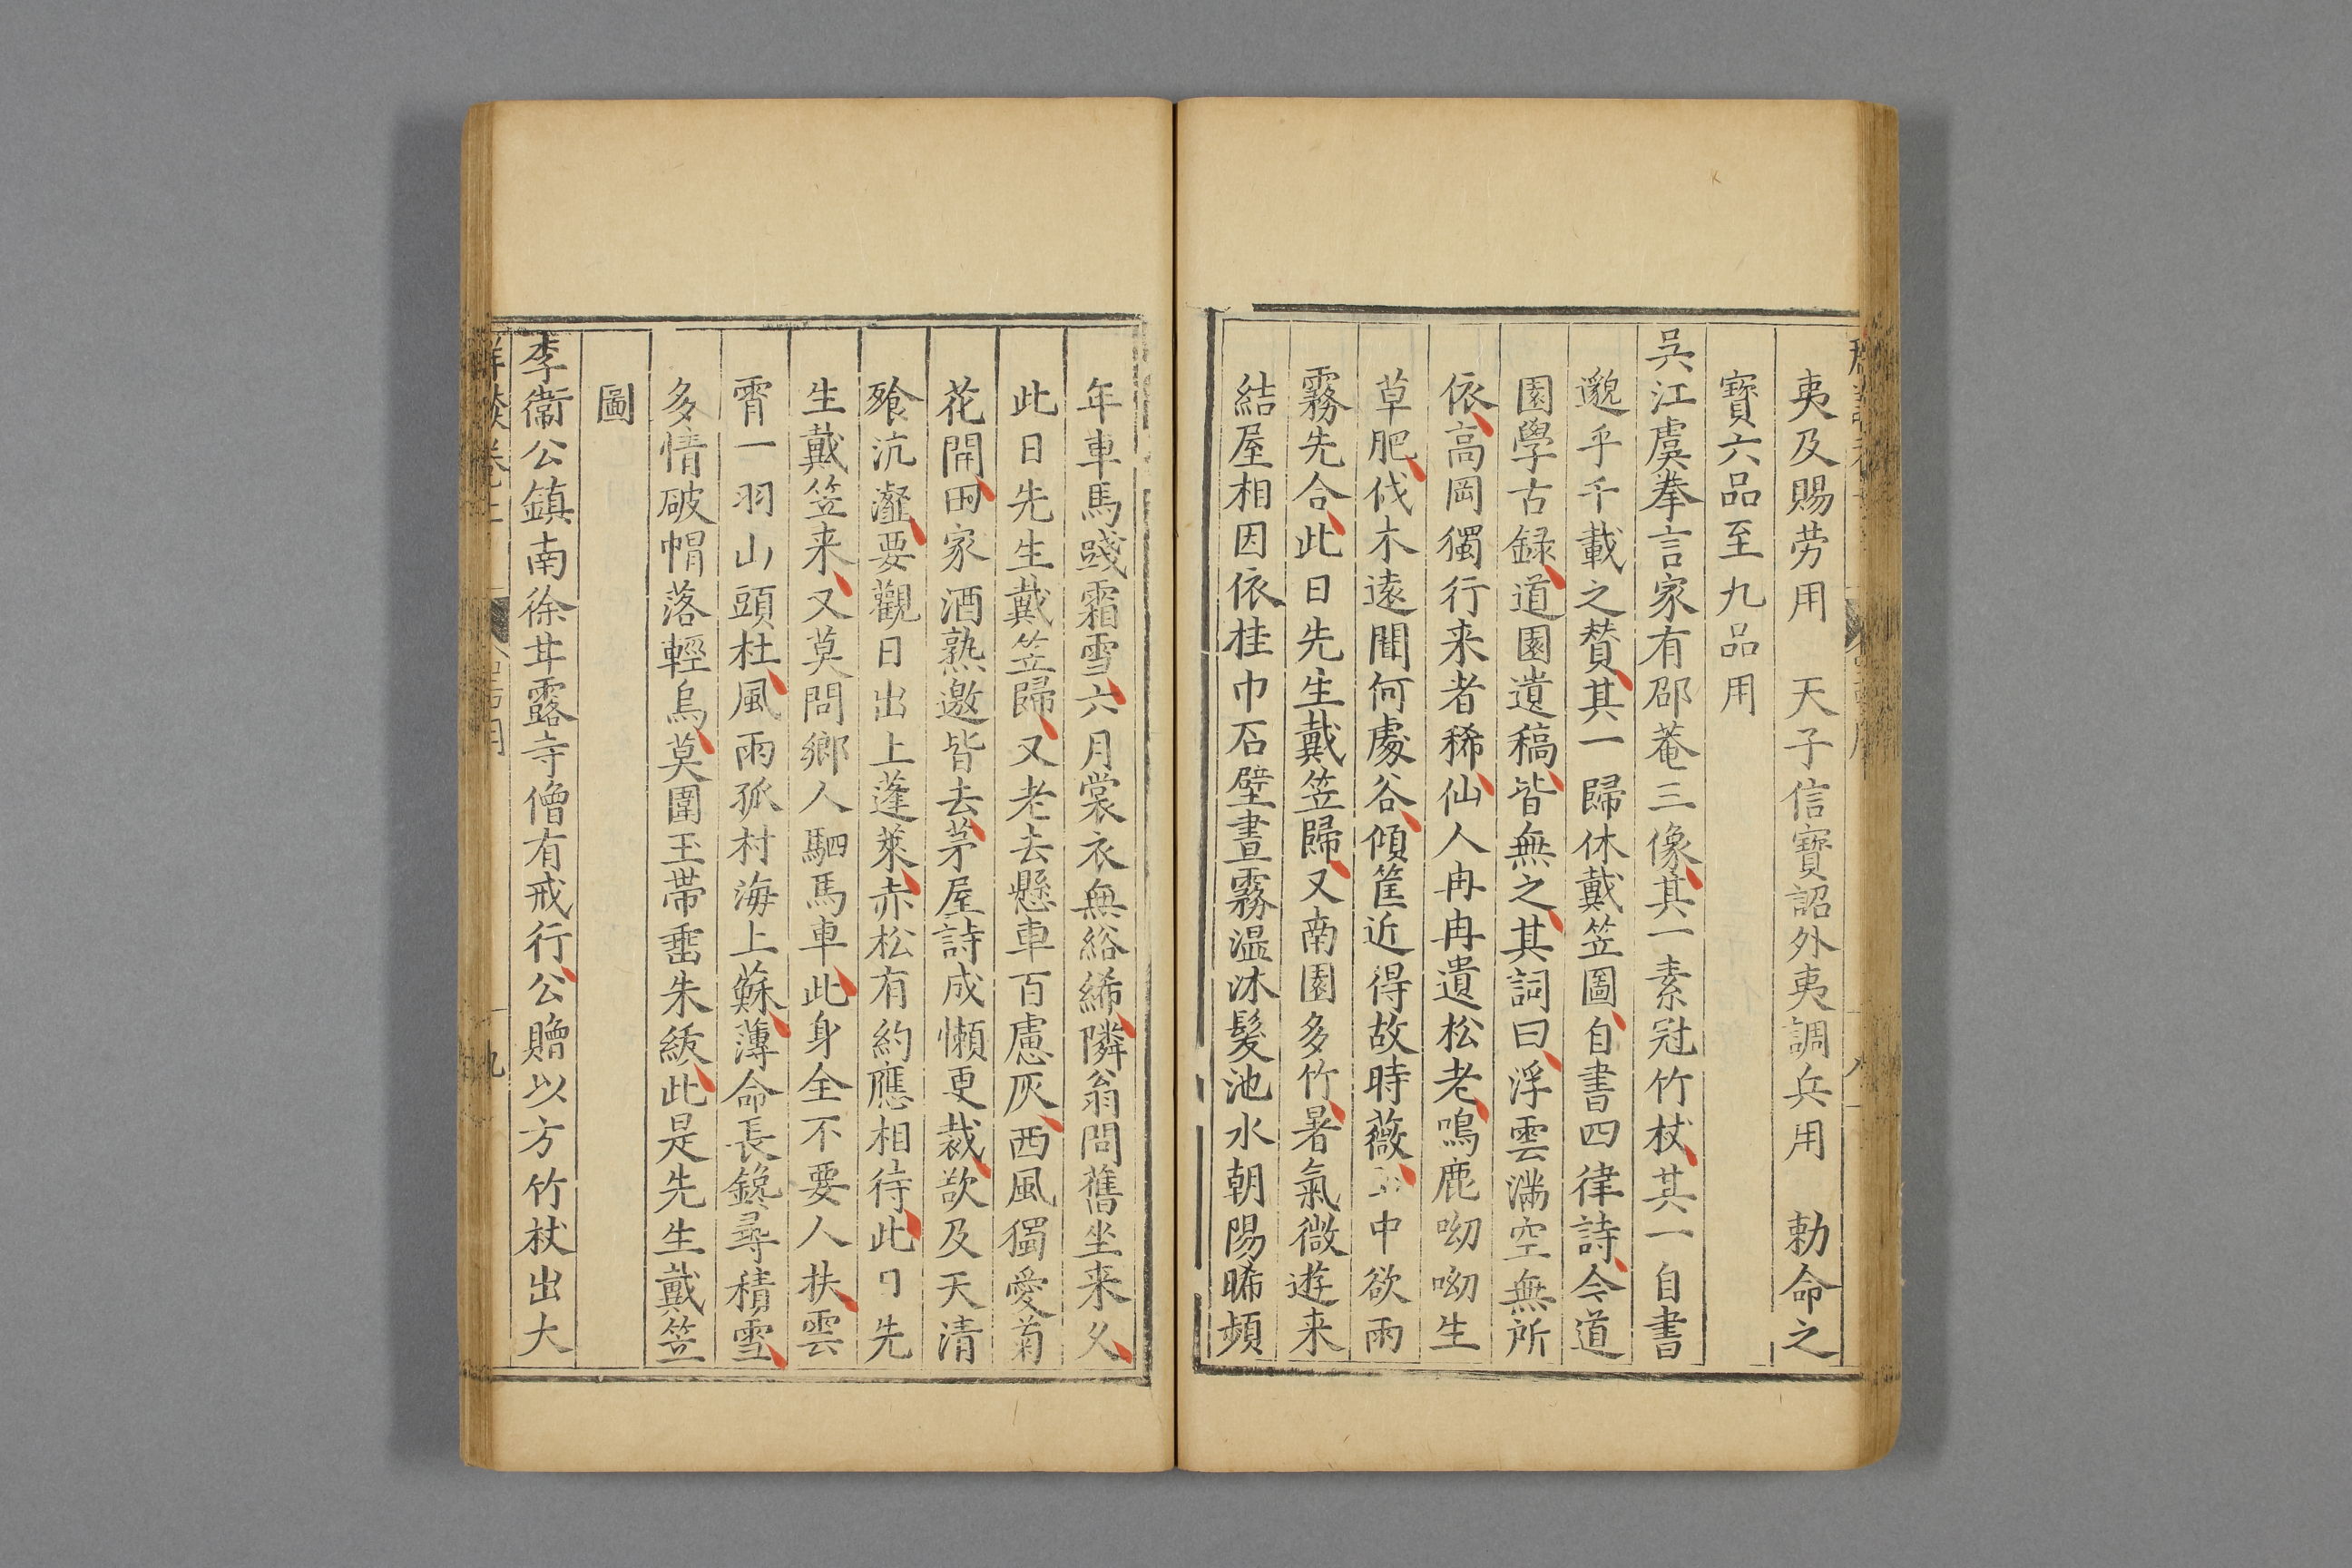 夷及賜劳用　天子信寶詔外夷調兵用　勅命之
寶六品至九品用
吳江虞拳言家有邵菴三像其一素冠竹杖其一自書
邈乎千載之賛其一歸休戴笠圖自書四律詩今道
園學古録道園遺稿皆無之其詞曰浮雲滿空無所
依高岡獨行来者稀仙人冉冉遺松老鳴鹿呦呦生
草肥伐木遠聞何處谷傾筐近得故時薇中欲雨
霧先合此日先生戴笠歸又南園多竹暑氣微遊来
結屋相因依桂巾石壁晝霧溫沐髮池水朝陽晞頻
年車馬踐霜雪六月裳衣無綌絺隣翁問舊坐来久
此日先生戴笠歸又老去懸車百慮灰西風獨愛菊
花開田家酒熟邀皆去茅屋詩成懶更裁欲及天清
飱沆瀣要觀日出上蓬萊赤松有約應相待此日先
生戴笠来又莫問鄉人駟馬車此身全不要人扶雲
霄一羽山頭杜風雨孤村海上蘇薄命長鑱尋積雪
多情破帽落輕烏莫圍玉帶垂朱紱此是先生戴笠
圖
李衞公鎮南徐甘露寺僧有戒行公贈以方竹杖出大
九